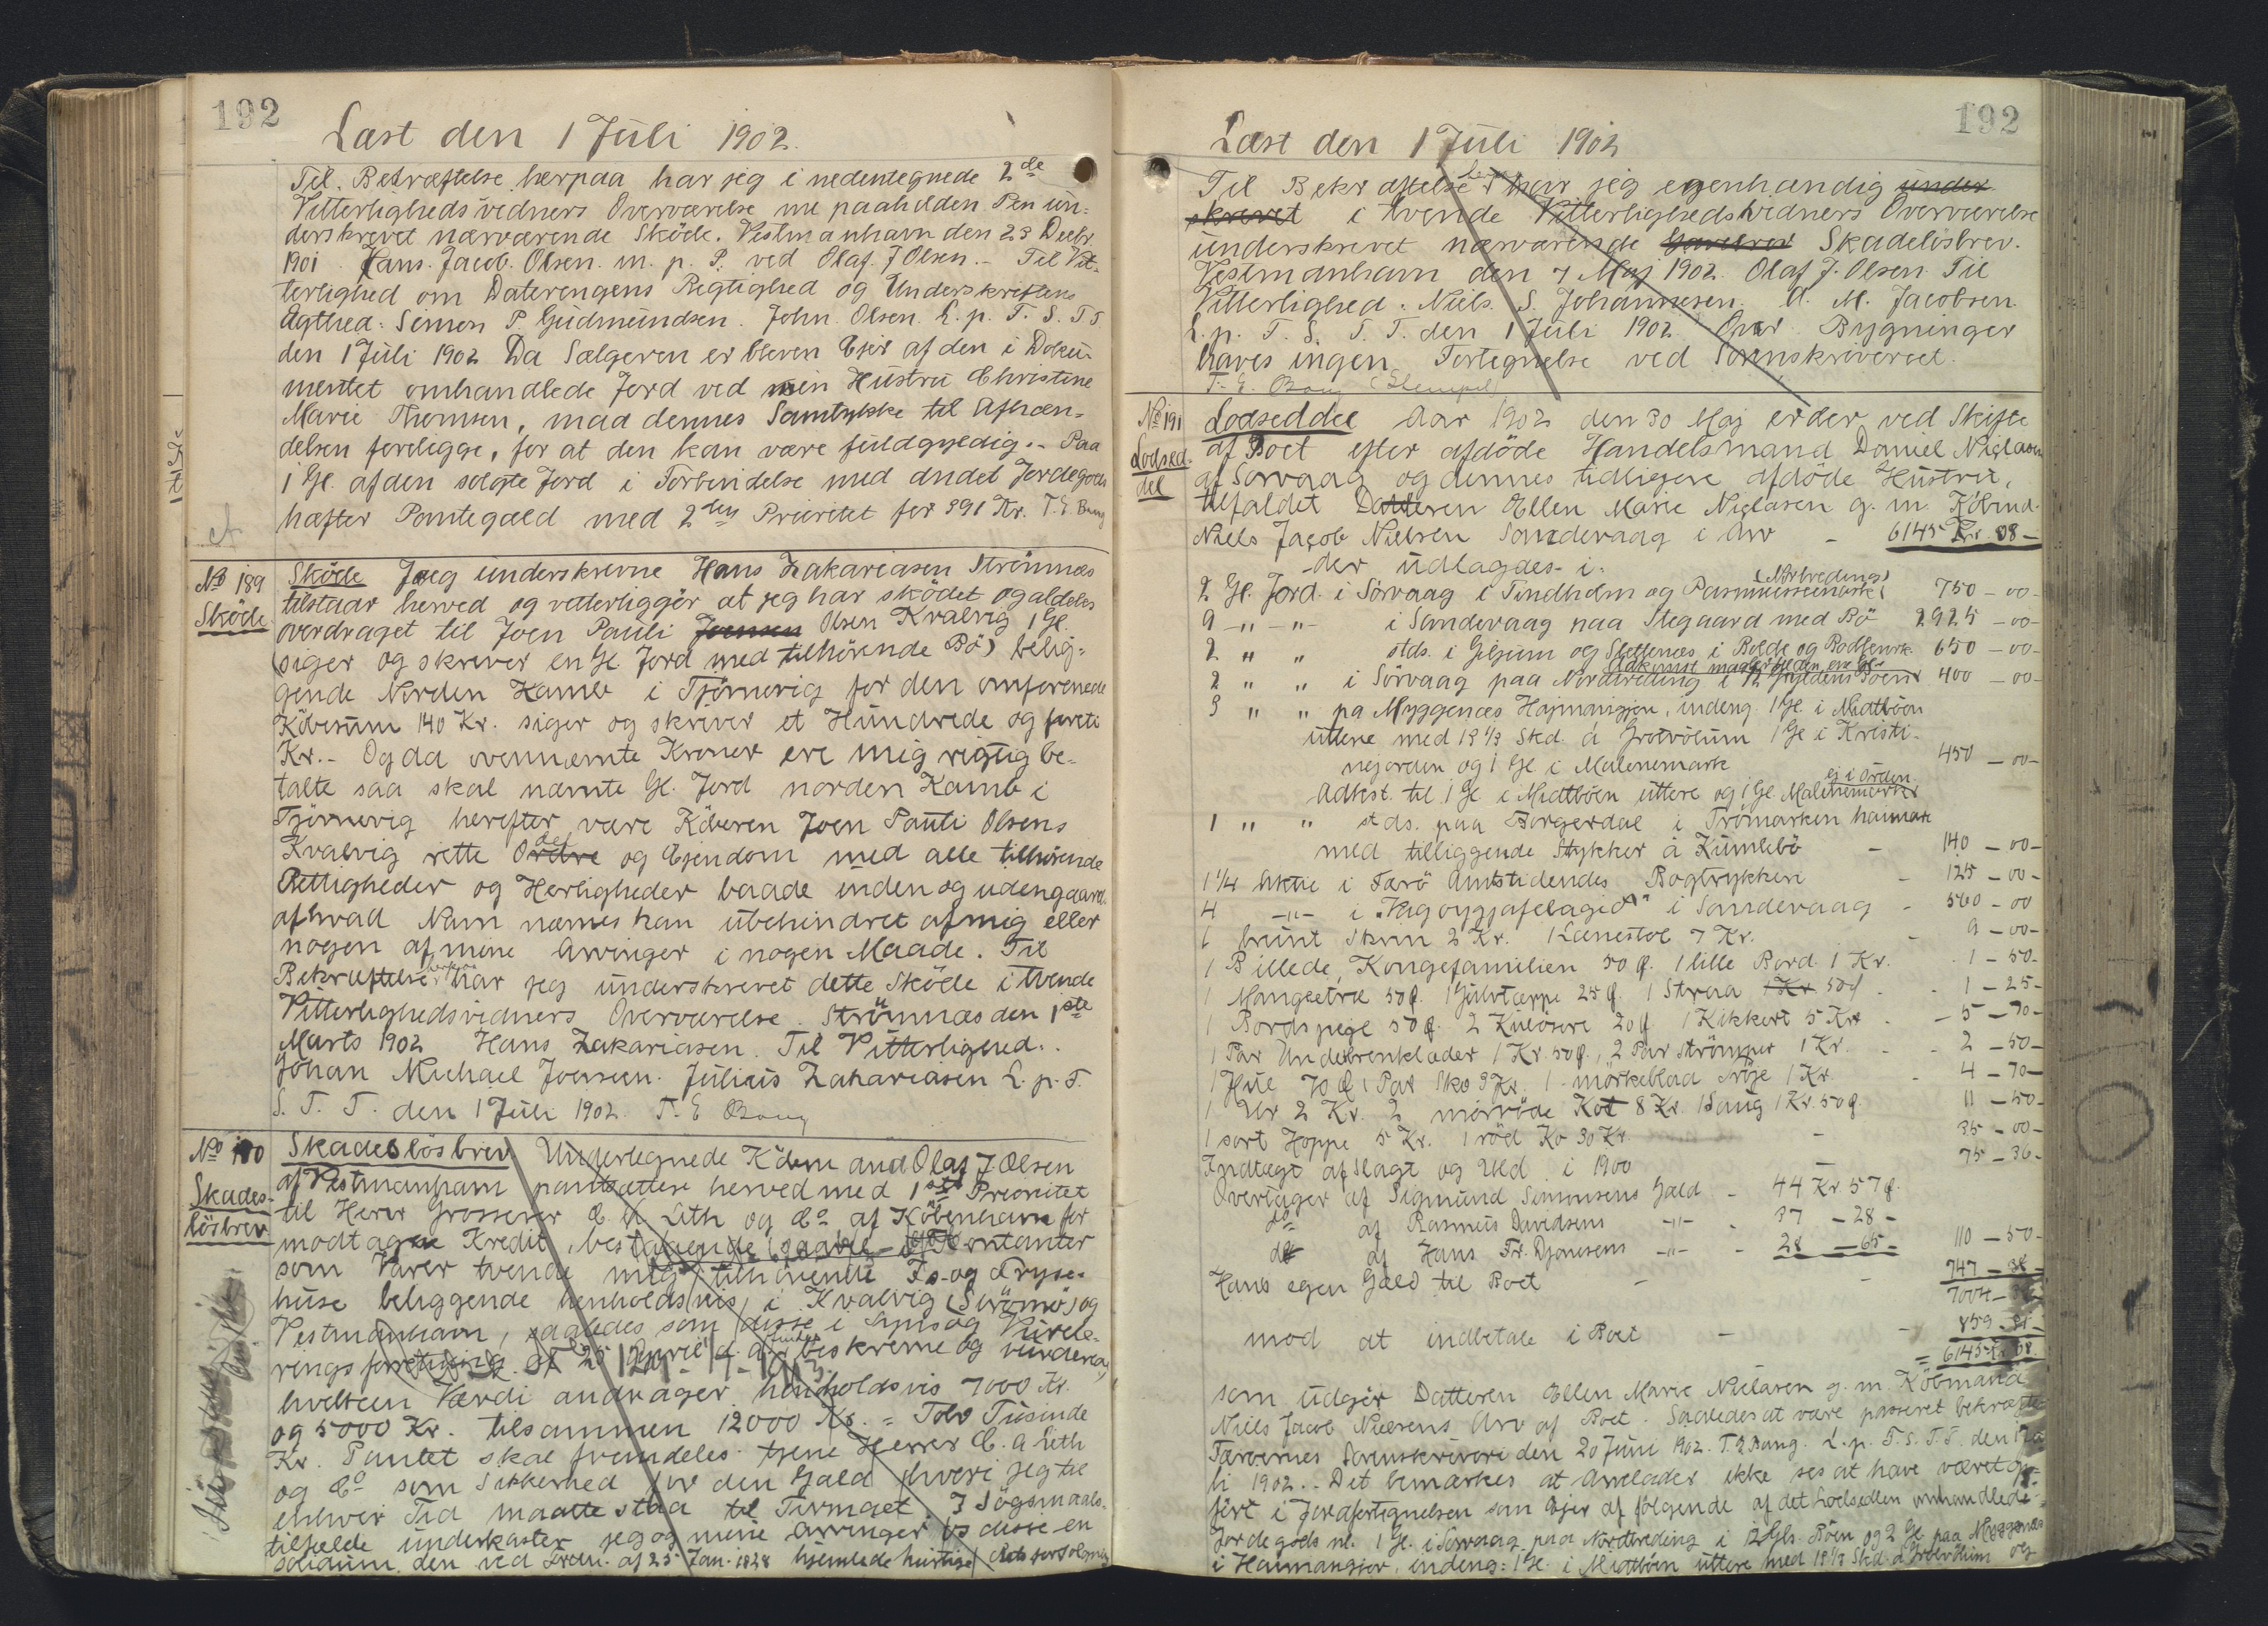 192
Læst den 1 Juli 1902.
Til Bekræftelse herpaa har jeg i nedentegnede 2de
Vitterlighedsvidners Overværelse me paaholden Pen un-
derskrevet nærværende Sköde. Vestmanhavn den 23 Decbr.
1901. Hans Jacob Olsen m. p. P. ved Olaf J Olsen. - Til Vit-
terlighed om Dateringens Rigtighed og Underskriftens
Ægthed: Simon P. Gudmundsen. John Olsen. L. p. F. S. T T.
den 1 Juli 1902 Da Sælgeren er bleven Ejer af den i Doku-
mentet omhandlede Jord ved min Hustru Christine
Marie Thomsen, maa dennes Samtykke til Afhæn-
delsen forelegge, for at den kan være fuldgyldig. - Paa
1 Gl. af den solgte Jord i Forbindelse med andet Jordegods
hæfter Pantegæld med 2den Prioritet for 391 Kr. T. E Bang
No 189
Sköde
Sköde Jeg underskrevne Hans Zakariasen Strömnæs
tilstaar herved og vitterliggör at jeg har sködet og aldeles
overdraget til Joen Pauli Joensen Olsen Kvalvig 1 Gl.
(siger og skriver en Gl Jord med tilhörende Bö) belig-
gende Norden Kamb i Tjörnevig for den omforenede
Köbesum 140 Kr. siger og skriver et Hundrede og fireti
Kr. - Og da ovennæmte Kroner ere mig rigtig be-
talte saa skal næmte Gl. Jord norden Kamb i
Tjörnevig herefter være Köberen Joen Pauli Olsens
Kvalvig rette Odel og Ejendom med alle tilhörende
Rettigheder og Herligheder baade inden og udengaards
af hvad Navn næmes kan ubehindret af mig eller
nogen af mine Arvinger i nogen Maade. Til
Bekræftelse herpaa har jeg underskrevet dette Sköde i tvende
Vitterlighedsvidners Overværelse. Strömnæs den 1ste
Marts 1902 Hans Zakariasen. Til Vitterlighed.
Johan Michael Joensen. Julius Zakariasen L. p. F.
S. T. T. den 1 Juli 1902. T. E Bang
No 190
Skades-
lösbrev
Skadeslösbrev Undertegnede Köbmand Olaf J. Olsen
af Vestmanhavn pantsætter herved med 1ste Prioritet
til Herrer Grosserer C. A Leth og Co af Köbenhavn for
modtagne Kredit, bestaaende saavel af Kontanter
som Varer tvende mig tilhörende Is- og Fryse-
huse beliggende henholdsvis i Kvalvig (Strömö) og
Vestmanhavn, saaledes som disse i Syns og Vurde-
rings forretning af 25 April d. A. findes beskrevne og vurderede,
hvilken Værdi andrager henholdsvis 7000 Kr.
og 5000 Kr. tilsammen 12000 Kr. = Tolv Tusinde
Kr. Pantet skal fremdeles tjene Herrer C. A Leth
og Co som Sikkerhed for den Gæld hvori jeg til
enhver Tid maatte staa til Firmaet. I Sögsmaals-
tilfælde underkaster jeg og mine Arvinger os disse en
solidum, den ved Frdn. af 25 Jan. 1828 hjemlede hurtige Retsforfölgning
192
Læst den 1 Juli 1902
Til Bekræftelse herpaa har jeg egenhændig under-
skrevet i tvende Vitterlighedsvidners Overværelse
underskrevet nærværende Skadelösbrev.
Vestmanhavn den 7 Maj 1902. Olaf J. Olsen. Til
Vitterlighed: Niels S. Johannesen. A. M. Jacobsen
L. p. T. S. T. T. den 1 Juli 1902 Over Bygninger
haves ingen Fortegnelse ved Sornskriveriet.
T. E. Bang (Stempel)
No 191
Lodsed-
del
Lodseddel Aar 1902 den 30 Maj er der ved Skifte
af Boet efter afdöde Handelsmand Daniel Niclasen
af Sörvaag og dennes tidligere afdöde Hustru,
tilfaldet Datteren Ellen Marie Niclasen g. m. Köbmd.
Niels Jacob Nielsen Sandevaag i Arv - 6145 Kr. 08 -
der udlagdes i:
2 Gl. Jord i Sörvaag i Tindholm og Rasmussemark (Nordreding) 750 - 00 -
9 -"- -"- i Sandevaag paa Stegaard med Bö 2925 - 00 -
2 " " stds. i Giljum og Slettenæs i Bolde og Bodlenvk 650 - 00 -
2 " " i Sörvaag paa Nordreding i 12 Gyldens Böen 400 - 00 -
3 " " pa Myggenæs Hajmangjov, indeng. 1 Gl. i Midtböen
uttere med 19 1/3 Skd. a Grotvölum 1 Gl i Kristi-
nejorden og 1 Gl i Malenemark 450 - 00 -
Adkst. til 1 Gl i Midtböen uttere og 1 Gl. Malenemark ej i Orden
1 " " stds. paa Borgerdal i Trömarken haimare
med tilliggende Stykker a Kumlebö - 140 - 00 -
1 1/4 Aktie i Færö Amtstidendes Bogtrykkeri - 125 - 00 -
4 -"- i "Vágbyggjafelagid" i Sandevaag - 560 - 00
1 brunt Skrin 2 Kr. 1 Lænestol 7 Kr. - 9 - 00 -
1 Billede, Kongefamilien 50 Ø. 1 lille Bord 1 Kr. - 1 - 50 -
1 Mangletræ 50 Ø. 1 Gulvtæppe 25 Ø. 1 Straa 1 Kr 50 Ø - 1 - 25 -
1 Bordspejl 50 Ø. 2 Kulösere 20 Ø. 1 Kikkert 5 Kr - 5 - 70 -
1 Par Underbenklæder 1 Kr. 50 Ø., 2 Par Strömper 1 Kr. - 2 - 50 -
1 Hue 70 Ø 1 Par Sko 3 Kr. 1 mörkeblaa Tröje 1 Kr. - 4 - 70 -
1 Ur 2 Kr. 2 morröde Kot 8 Kr. 1 Saug 1 Kr. 50 Ø - 11 - 50 -
1 sort Hoppe 5 Kr. 1 röd Ko 30 Kr. - 35 - 00 -
Indtægt af Slagt og Uld i 1900 - 75 - 36 -
Overtager af Sigmund Simonsens Gæld - 44 Kr. 57 Ø.
do af Rasmus Davidsens -"- - 37 - 28 -
do af Hans Fr. Djonesens -"- - 28 - 65 - 110 - 50 -
Hans egen Gæld til Boet - 747 - 38 -
7004 -
mod at indbetale i Boet - 859 - 31 -
= 6145 Kr 08.
som udgör Datteren Ellen Marie Niclasen g. m. Köbmand
Niels Jacob Nielsens Arv af Boet. Saaledes at være passeret bekræftes
Færöernes Sorenskriveri den 20 Juni 1902. T. E Bang. L. p. F. S. T. T. den 1 Ju-
li 1902. Det bemærkes at Arvelader ikke ses at have været op-
fört i Jordfortegnelsen som Ejer af fölgende af det Lodsedlen omhandlede
Jordegods nl. 1 Gl. i Sörvaag paa Nordreding i 12 Gls. Böen og 2 Gl. paa Myggenæs
i Haimangjov, indeng: 1 Gl. i Midtböen uttere med 19 1/3 Skd. a Grotvölum og